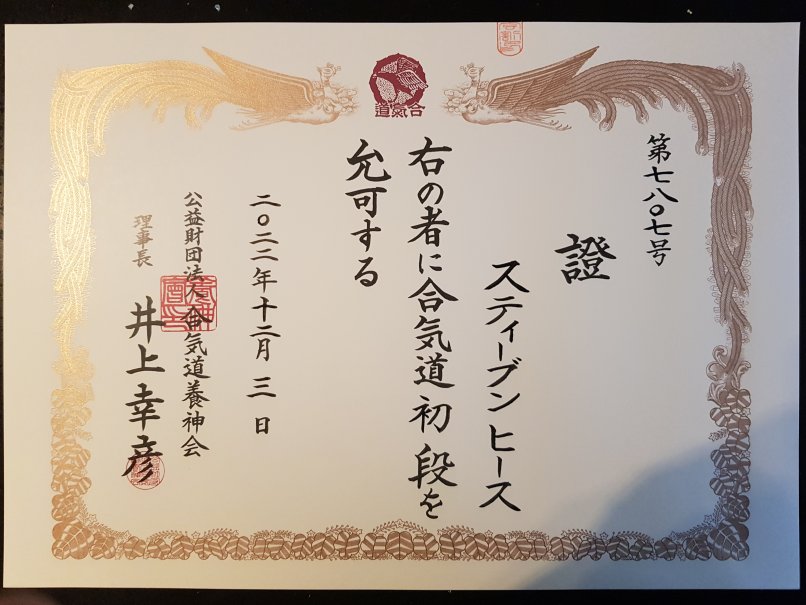 合氣道
第七八〇七号
證
スティーブン ヒース
右の者に合気道初段を
允可する
二〇二二年十二月三日
公益財団法人合気道養神会
理事長 井上幸彦